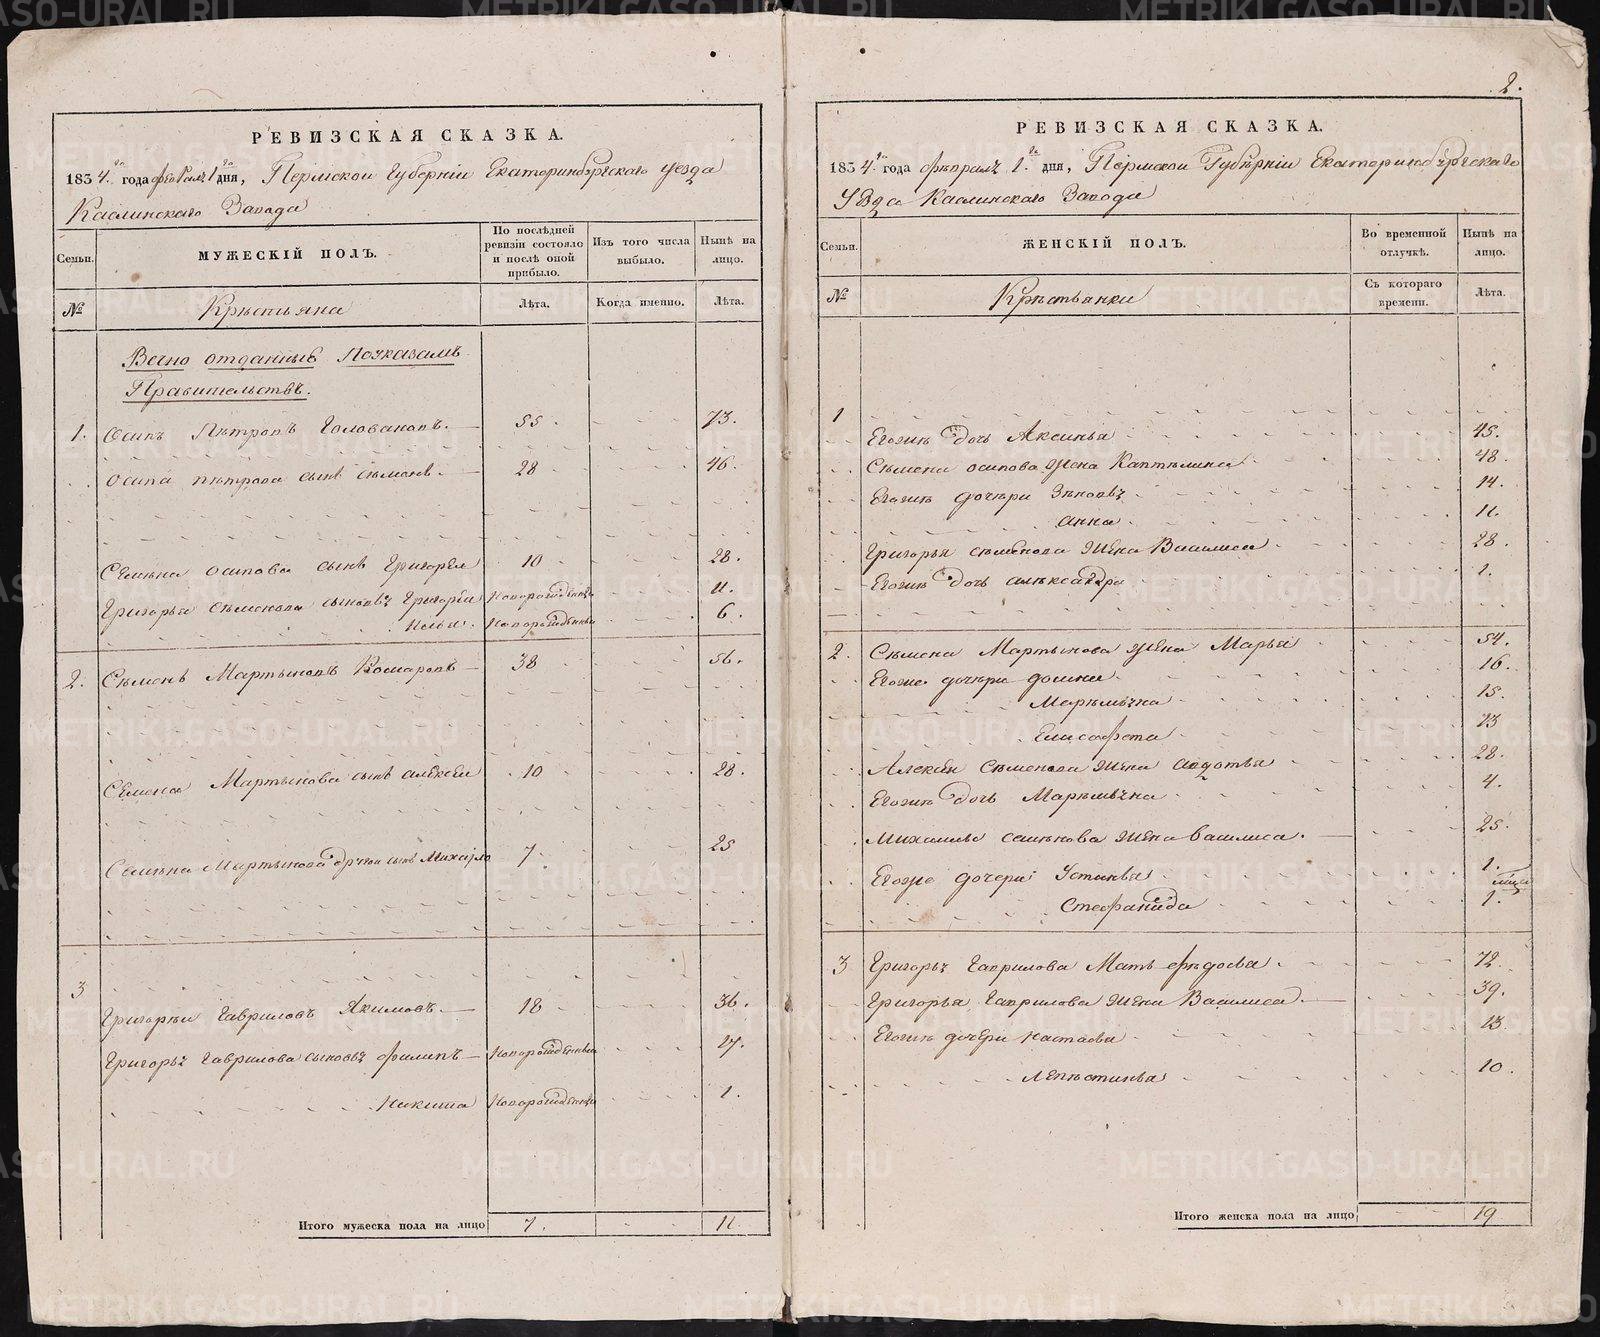 2.
РЕВИЗСКАЯ СКАЗКА.
1834 го года февраля 1 го дня, Пермской Губернии Екатеринбургскаго уезда
Каслинскаго Завода
Семьи.
МУЖЕСКІЙ ПОЛЪ.
По послѣдней ревизіи состояло и послѣ оной прибыло.
Изъ того числа выбыло.
Нынѣ на лицо.
№
Крѣстьяна
Лѣта.
Когда именно.
Лѣта.
Вечно отданныѣ Поуказамъ
Правительствъ.
1. Осипъ Пѣтровъ Головановъ. 55. 73.
Осипа пѣтрова сынъ Сѣменъ. 28 46.
Семѣна осипова сынъ Григореи 10 28.
Григорья сѣменова сыновъ Григории Новорожденныи 11.
Илья. Новорожденныи 6.
2. Сѣменъ Мартыновъ Комаровъ 38 56.
Семена Мартынова сынъ алѣксеи 10 28.
Семѣна Мартынова другои сынъ Михаило 7. 25
3
Григореи Гавриловъ Якимовъ. 18 36.
Григорьѣ Гаврилова сыновъ Филипъ Новорожденныи 17.
Никита Новорожденныи 1.
Итого мужеска пола на лицо 7. 11
РЕВИЗСКАЯ СКАЗКА.
1834 го года февраль 1. го дня, Пермской Губѣрніи Екатеринбургскаго
Уѣзда Каслинскаго Завода
Семьи.
ЖЕНСКІЙ ПОЛЪ.
Во временной отлучкѣ.
Нынѣ на лицо.
№
Крѣстьянки
Съ котораго времени.
Лѣта.
1
Егожѣ дочь Аксинья 45.
Сѣмена осипова жена Каптѣлина 48
Егожѣ дочѣри Зѣновъ 14.
анна 11.
Григорья сѣмѣнова жѣна Василиса 28.
Егожѣ дочь алѣксандра 1.
2. Сѣмена Мартынова жѣна Марья 54.
Егоже дочѣри домна 16.
Марѣмьяна 15.
Елисафета 13
Алексѣя Сѣменова жѣна авдотья 28.
Егожѣ дочь Марѣмьяна 4.
Михаило семѣнова жѣна василиса. 25.
Егоже дочери Устинья 1.
Стефанида 1.
3 Григорьѣ Гаврилова Мать фѣдосья 72.
Григорья Гаврилова жѣна Василиса 39.
Егожѣ дочѣри настасья 13.
10.
Итого женска пола на лицо 19
METRIKI.GASO-URAL.RU